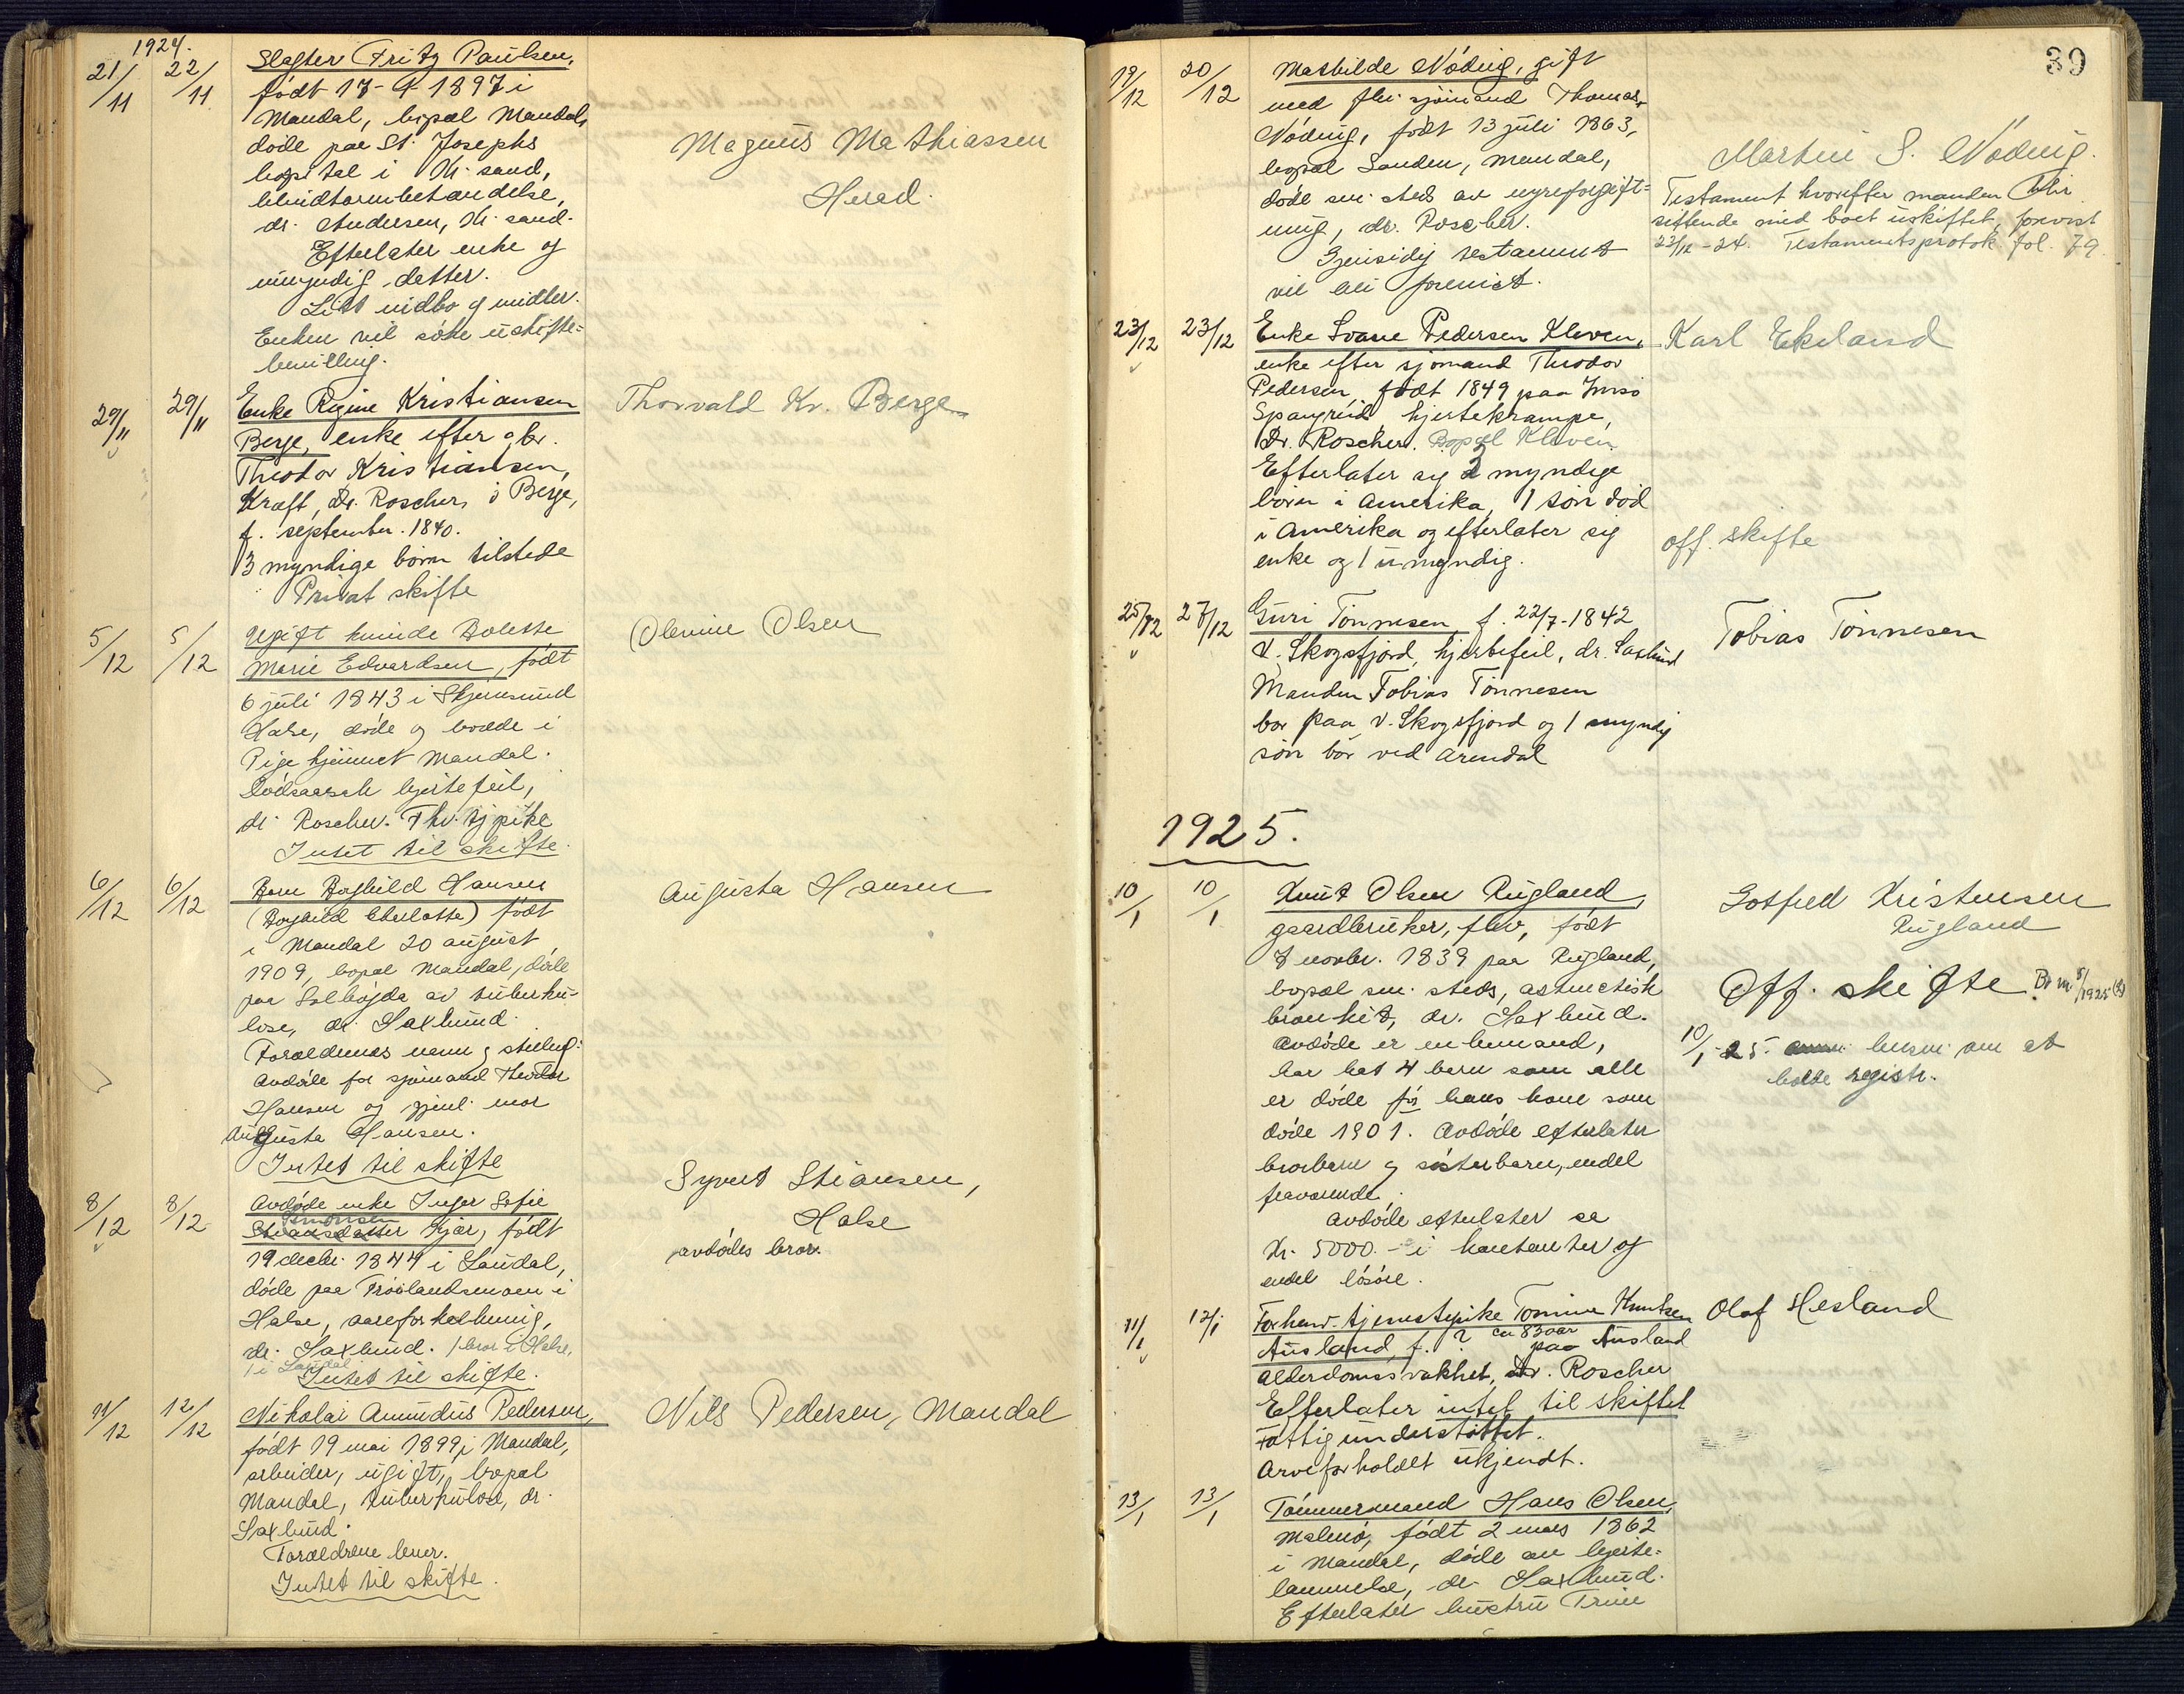 1924.
21/11 22/11 Slagter Fritz Paulsen,
født 17-9 1897 i
Mandal, bopæl Mandal,
døde paa St. Josephs
hospital i Kr. sand,
blindtarmbetændelse,
dr. Andersen, Kr. sand.
Efterlater enke og
umyndig datter.
Litt indbo og midler.
Enken vil søke uskifte-
bevilling.
Magnus Mathiassen
Herad.
29/11 29/11 Enke Regine Kristiansen
Berge, enke efter gbr.
Theodor Kristiansen,
Kræft, Dr. Roscher, i Berge,
f. september 1840.
3 myndige børn tilstede
Privat skifte
Thorvald Kr. Berge
5/12 5/12 Ugift kvinde Bolette
Marie Edvardsen, født
6 juli 1843 i Skjernsund
Halse, døde og bodde i
Pigehjemmet Mandal.
Dødsaarsak hjertefeil,
dr. Roscher. Fhv. tj. pike
Intet til skifte.
Olevine Olsen
6/12 6/12 Barn Borghild Hansen
(Borghild Charlotte) født
i Mandal 20 august
1909, bopæl Mandal, døde
paa Solhøgda av tuberku-
lose, dr. Saxlund.
Forældrenes navn og stilling:
Avdøde fhv sjømand Theodor
Hansen og gjenl. mor
Augusta Hansen.
Intet til skifte
Augusta Hansen
8/12 8/12 Avdøde enke Inger Sofie
Simonsen
Stiansdatter Kjær, født
19 decbr. 1844 i Laudal,
døde paa Frøslandsmoen i
Halse, aareforkalkning,
dr. Saxlund. 1 bror i Halse,
1 i Laudal
Intet til skifte.
Syvert Stiansen,
Halse
avdødes bror.
11/12 12/12 Nikolai Amundus Pedersen,
født 19 mai 1899 i Mandal,
arbeider, ugift, bopæl
Mandal, tuberkulose, dr.
Saxlund.
Forældrene lever.
Intet til skifte.
Nils Pedersen, Mandal
39
19/12 20/12 Mathilde Nøding, gift
med fhv. sjømand Thomas
Nøding, født 13 juli 1863,
bopæl Sanden, Mandal,
døde sm. steds av nyreforgift-
ning, dr. Roscher.
Gjensidig testament
vil bli forevist.
Martin S. Nøding.
Testament hvorefter manden blir
sittende med boet uskiftet, forevist
23/12-24. Testamentsprotok. fol. 79
23/12 23/12 Enke Svane Pedersen Kleven,
enke efter sjømand Theodor
Pedersen, født 1849 paa
Spangreid hjertekrampe,
Dr. Roscher. Bopæl Kleven
Efterlater sig 2 myndige
børn i Amerika, 1 søn død
i Amerika og efterlater sig
enke og 1 umyndig.
Karl Ekeland
off. skifte
25/12 27/12 Guri Tønnesen f. 22/7-1842
V. Skogsfjord, hjertefeil, dr. Saxlund
Manden Tobias Tønnesen
bor paa V. Skogsfjord og 1 myndig
søn bor ved Arendal
Tobias Tønnesen
1925.
10/1 10/1 Knut Olsen Rugland,
gaardbruker, fhv, født
8 novbr. 1839 paa Rugland,
bopæl sm. steds, astmatisk
bronkit, dr. Saxlund.
Avdøde er enkemand,
har hat 4 barn som alle
er døde før hans kone som
døde 1901. Avdøde efterlater
brorbarn og søsterbarn, endel
fraværende.
Avdøde efterlater ca
Kr. 5000.- i kontanter og
endel løsøre.
Gotfred Kristensen
Rugland
Off. skifte
10/1-25. om at
holde registr.
11/1 12/1 Forhenv. tjenestepike Tomine Knutsen
Ausland, f. ? ca 83 aar paa Ausland
alderdomssvakhet, Dr. Roscher
Efterlater intet til skiftet
Fattigunderstøttet.
Arveforholdet ukjendt.
Olaf Hesland
13/1 13/1 Tømmermand Hans Olsen,
Malmø, født 2 mars 1862
i Mandal, døde av hjerte-
lammelse, dr. Saxlund.
Efterlater hustru Trine